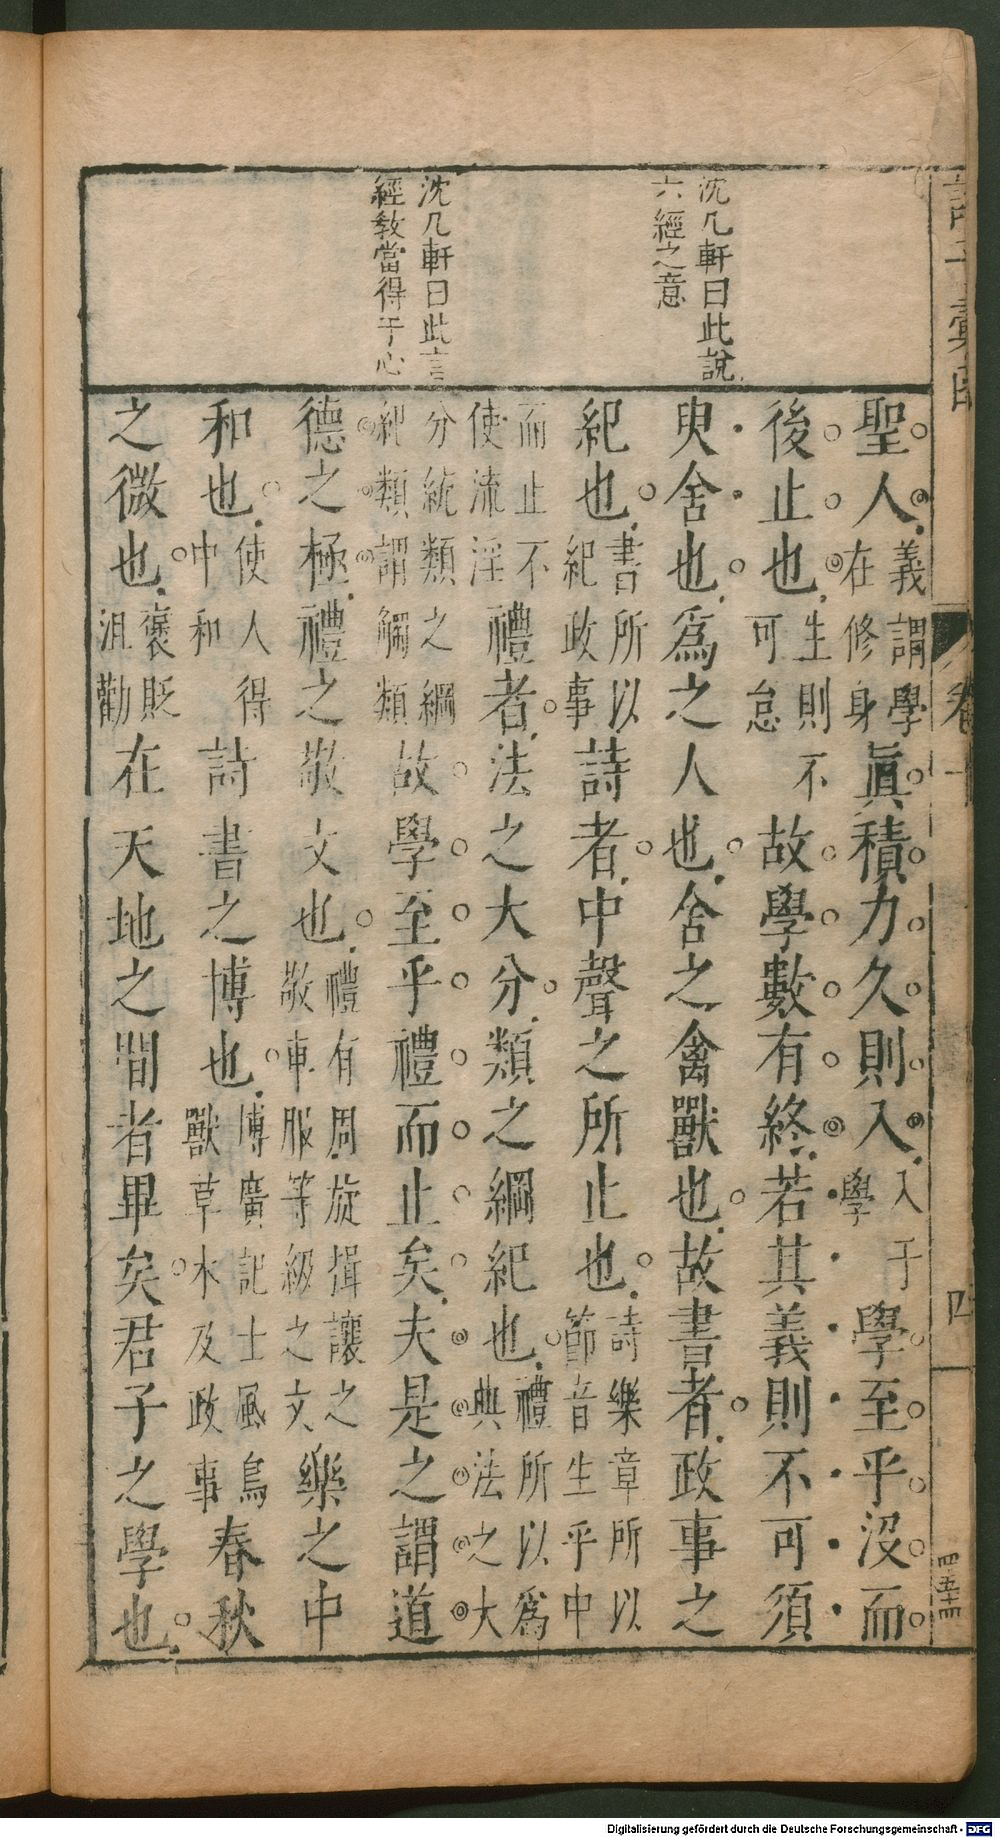 沈几軒曰此說
六經之意
沈几軒曰此言
經教當得于心
聖人義謂學在修身眞積力久則入入于學學至乎沒而
後止也生則不可怠故學數有終若其義則不可須
臾舍也爲之人也舍之禽獸也故書者政事之
紀也書所以紀政事詩者中聲之所止也詩樂章所以節音生乎中
而止不使流淫禮者法之大分類之綱紀也禮所以爲典法之大
分統類之綱紀類謂觸類故學至乎禮而止矣夫是之謂道
德之極禮之敬文也禮有周旋揖讓之敬車服等級之文樂之中
和也使人得中和詩書之博也博廣記土風鳥獸草木及政事春秋
之微也褒貶沮勸在天地之間者畢矣君子之學也
卷一
四
Digitalisierung gefördert durch die Deutsche Forschungsgemeinschaft - DFG